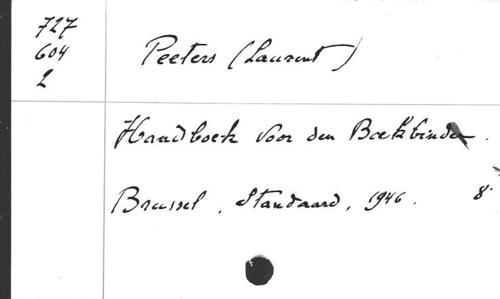 727
604
2
Peeters (Laurent)
Handboek voor den Boekbinder.
Brussel, Standaard, 1946. 8°